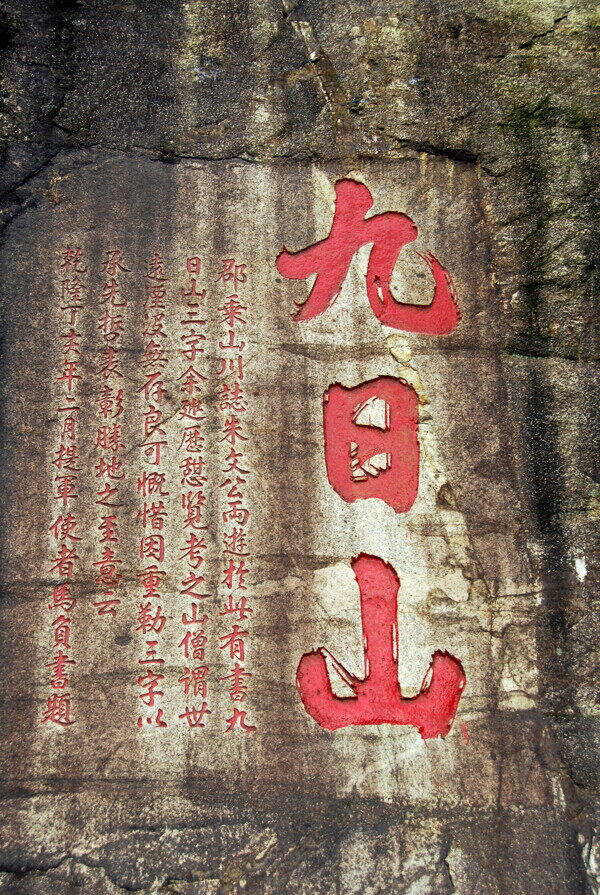 九日山
郡乘山川誌朱文公兩遊於此有書九
日山三字余遊歷憇覽考之山僧謂世
遠湮沒無存良可慨惜因重勒三字以
承先哲表彰勝地之至意云
乾隆丁亥年二月提軍使者馬負書題